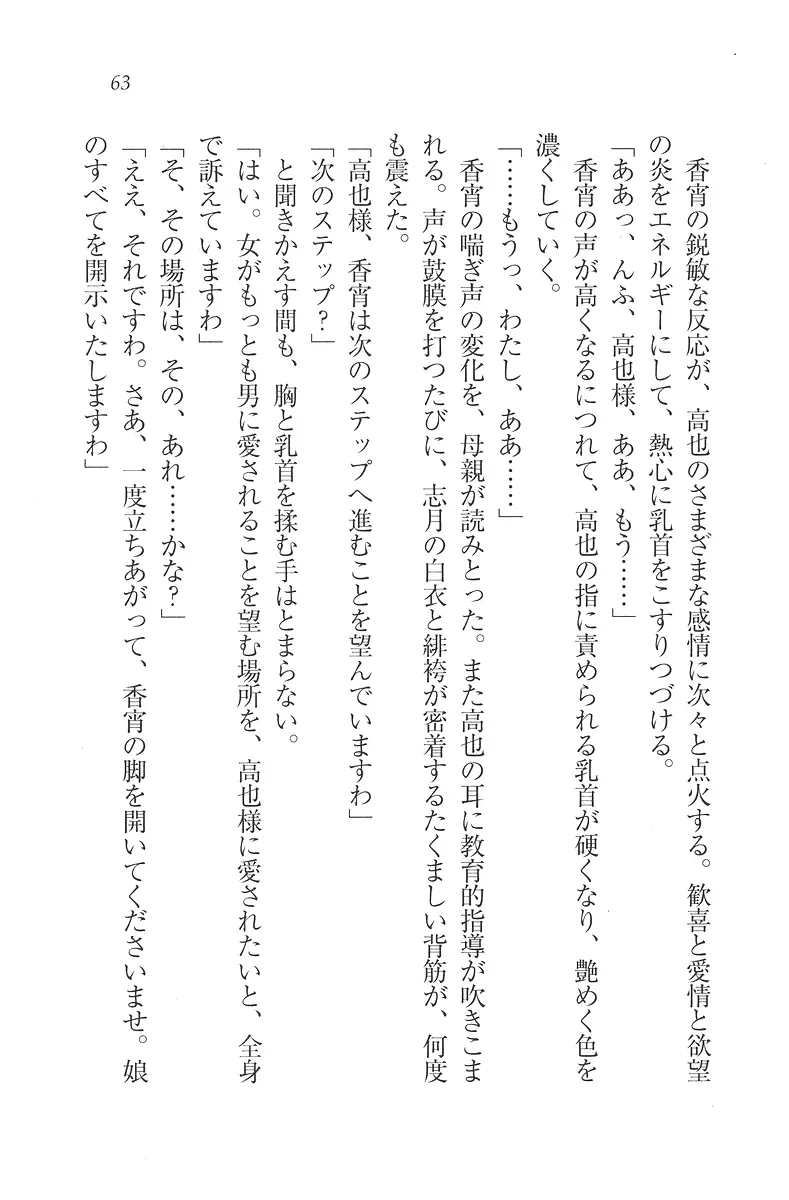 63
香宵の鋭敏な反応が、高也のさまざまな感情に次々と点火する。歓喜と愛情と欲望
の炎をエネルギーにして、熱心に乳首をこすりつづける。
「ああっ、んふ、高也様、ああ、もう……」
香宵の声が高くなるにつれて、高也の指に責められる乳首が硬くなり、艶めく色を
濃くしていく。
「……もうっ、わたし、ああ……」
香宵の喘ぎ声の変化を、母親が読みとった。また高也の耳に教育的指導が吹きこま
れる。声が鼓膜を打つたびに、志月の白衣と緋袴が密着するたくましい背筋が、何度
も震えた。
「高也様、香宵は次のステップへ進むことを望んでいますわ」
「次のステップ？」
と聞きかえす間も、胸と乳首を揉む手はとまらない。
「はい。女がもっとも男に愛されることを望む場所を、高也様に愛されたいと、全身
で訴えていますわ」
「そ、その場所は、その、あれ……かな？」
「ええ、それですわ。さあ、一度立ちあがって、香宵の脚を開いてくださいませ。娘
のすべてを開示いたしますわ」